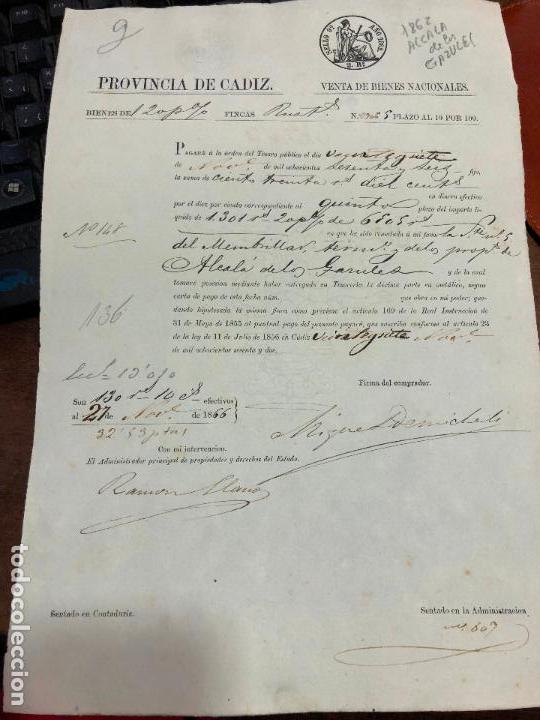 9
SELLO 9º AÑO 1862.
2. Rs
1862
ALCALA
de los
GAZULES
PROVINCIA DE CADIZ.
VENTA DE BIENES NACIONALES.
BIENES DE 20 p% FINCAS Rust.s N. 5 PLAZO AL 10 POR 100.
PAGARÉ á la órden del Tesoro público el dia veinte y siete
de Nov.e de mil ochocientos sesenta y seis fijo,
la suma de ciento treinta r.s diez cents en dinero efectivo
por el diez por ciento correspondiente al quinto plazo del importe lí-
quido de 1.301 r.s 20 p% de 6505 r.s
en que ha sido rematada á mi favor la
Nº 148
del Membrillar, term.º y de los prop.s de
Alcalá de los Gazules y de la cual
tomaré posesion mediante haber entregado en Tesorería la décima parte en metálico, segun
carta de pago de esta fecha núm. que obra en mi poder; quedando
hipotecada la misma finca como previene el artículo 169 de la Real Instruccion de
136
31 de Mayo de 1855 al puntual pago del presente pagaré, que suscribo conforme al artículo 24
de la ley de 11 de Julio de 1856 en Cádiz veinte y siete Nov.e
de mil ochocientos sesenta y dos.
Firma del comprador.
Son 130 r.s 10 c.s efectivos
al 27 de Nov.e de 1866
32'53 ptas
Miguel
Con mi intervencion.
El Administrador principal de propiedades y derechos del Estado.
Ramon Llano
Sentado en Contaduría.
Sentado en la Administracion
nº 607
todocoleccion.net